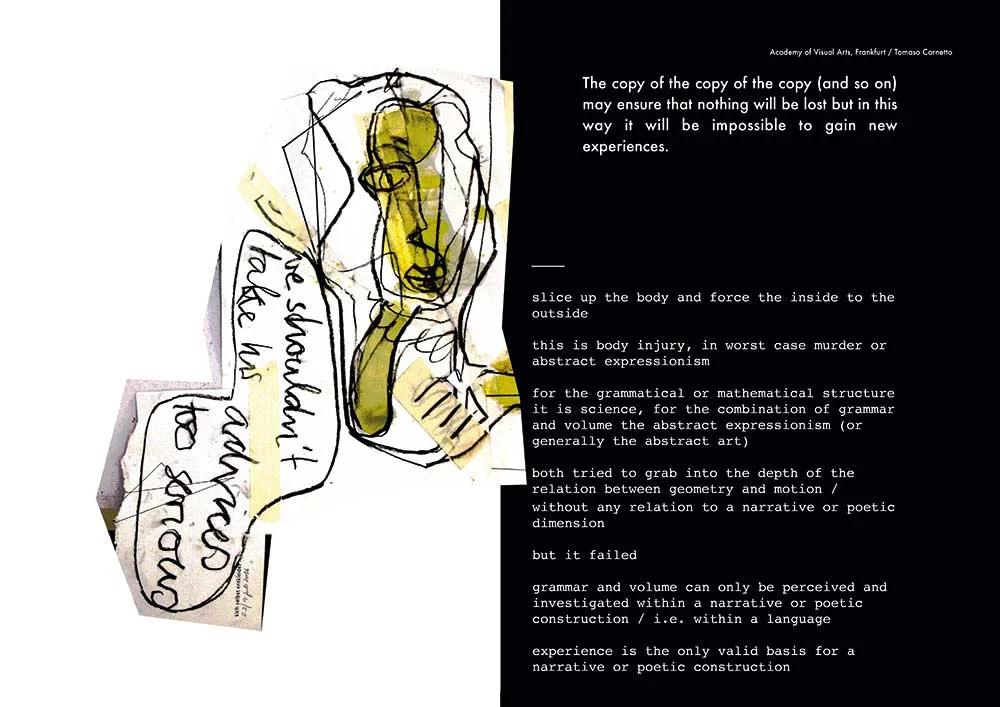 ve shouldn't
take his
advices
too serious
Academy of Visual Arts, Frankfurt / Tomaso Carnetto
The copy of the copy of the copy (and so on)
may ensure that nothing will be lost but in this
way it will be impossible to gain new
experiences.
slice up the body and force the inside to the
outside
this is body injury, in worst case murder or
abstract expressionism
for the grammatical or mathematical structure
it is science, for the combination of grammar
and volume the abstract expressionism (or
generally the abstract art)
both tried to grab into the depth of the
relation between geometry and motion /
without any relation to a narrative or poetic
dimension
but it failed
grammar and volume can only be perceived and
investigated within a narrative or poetic
construction / i.e. within a language
experience is the only valid basis for a
narrative or poetic construction